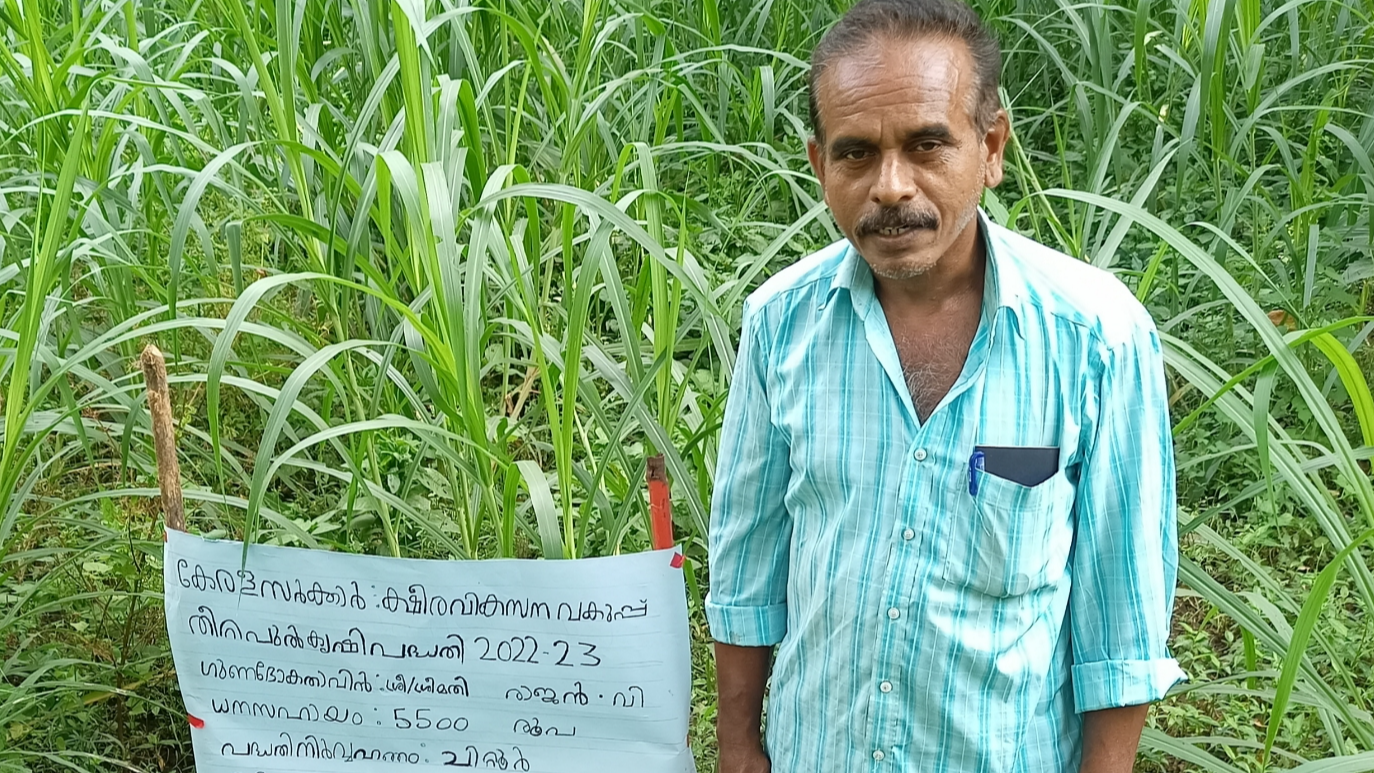 കേരള സർക്കാർ : ക്ഷീരവികസന വകുപ്പ്
തീറ്റപുൽകൃഷി പദ്ധതി 2022-23
ഗുണഭോക്താവിൻ : ശ്രീ/ശ്രീമതി രാജൻ . വി
ധനസഹായം : 5500 രൂപ
പദ്ധതി നിർവ്വഹണം : ചിറ്റൂർ